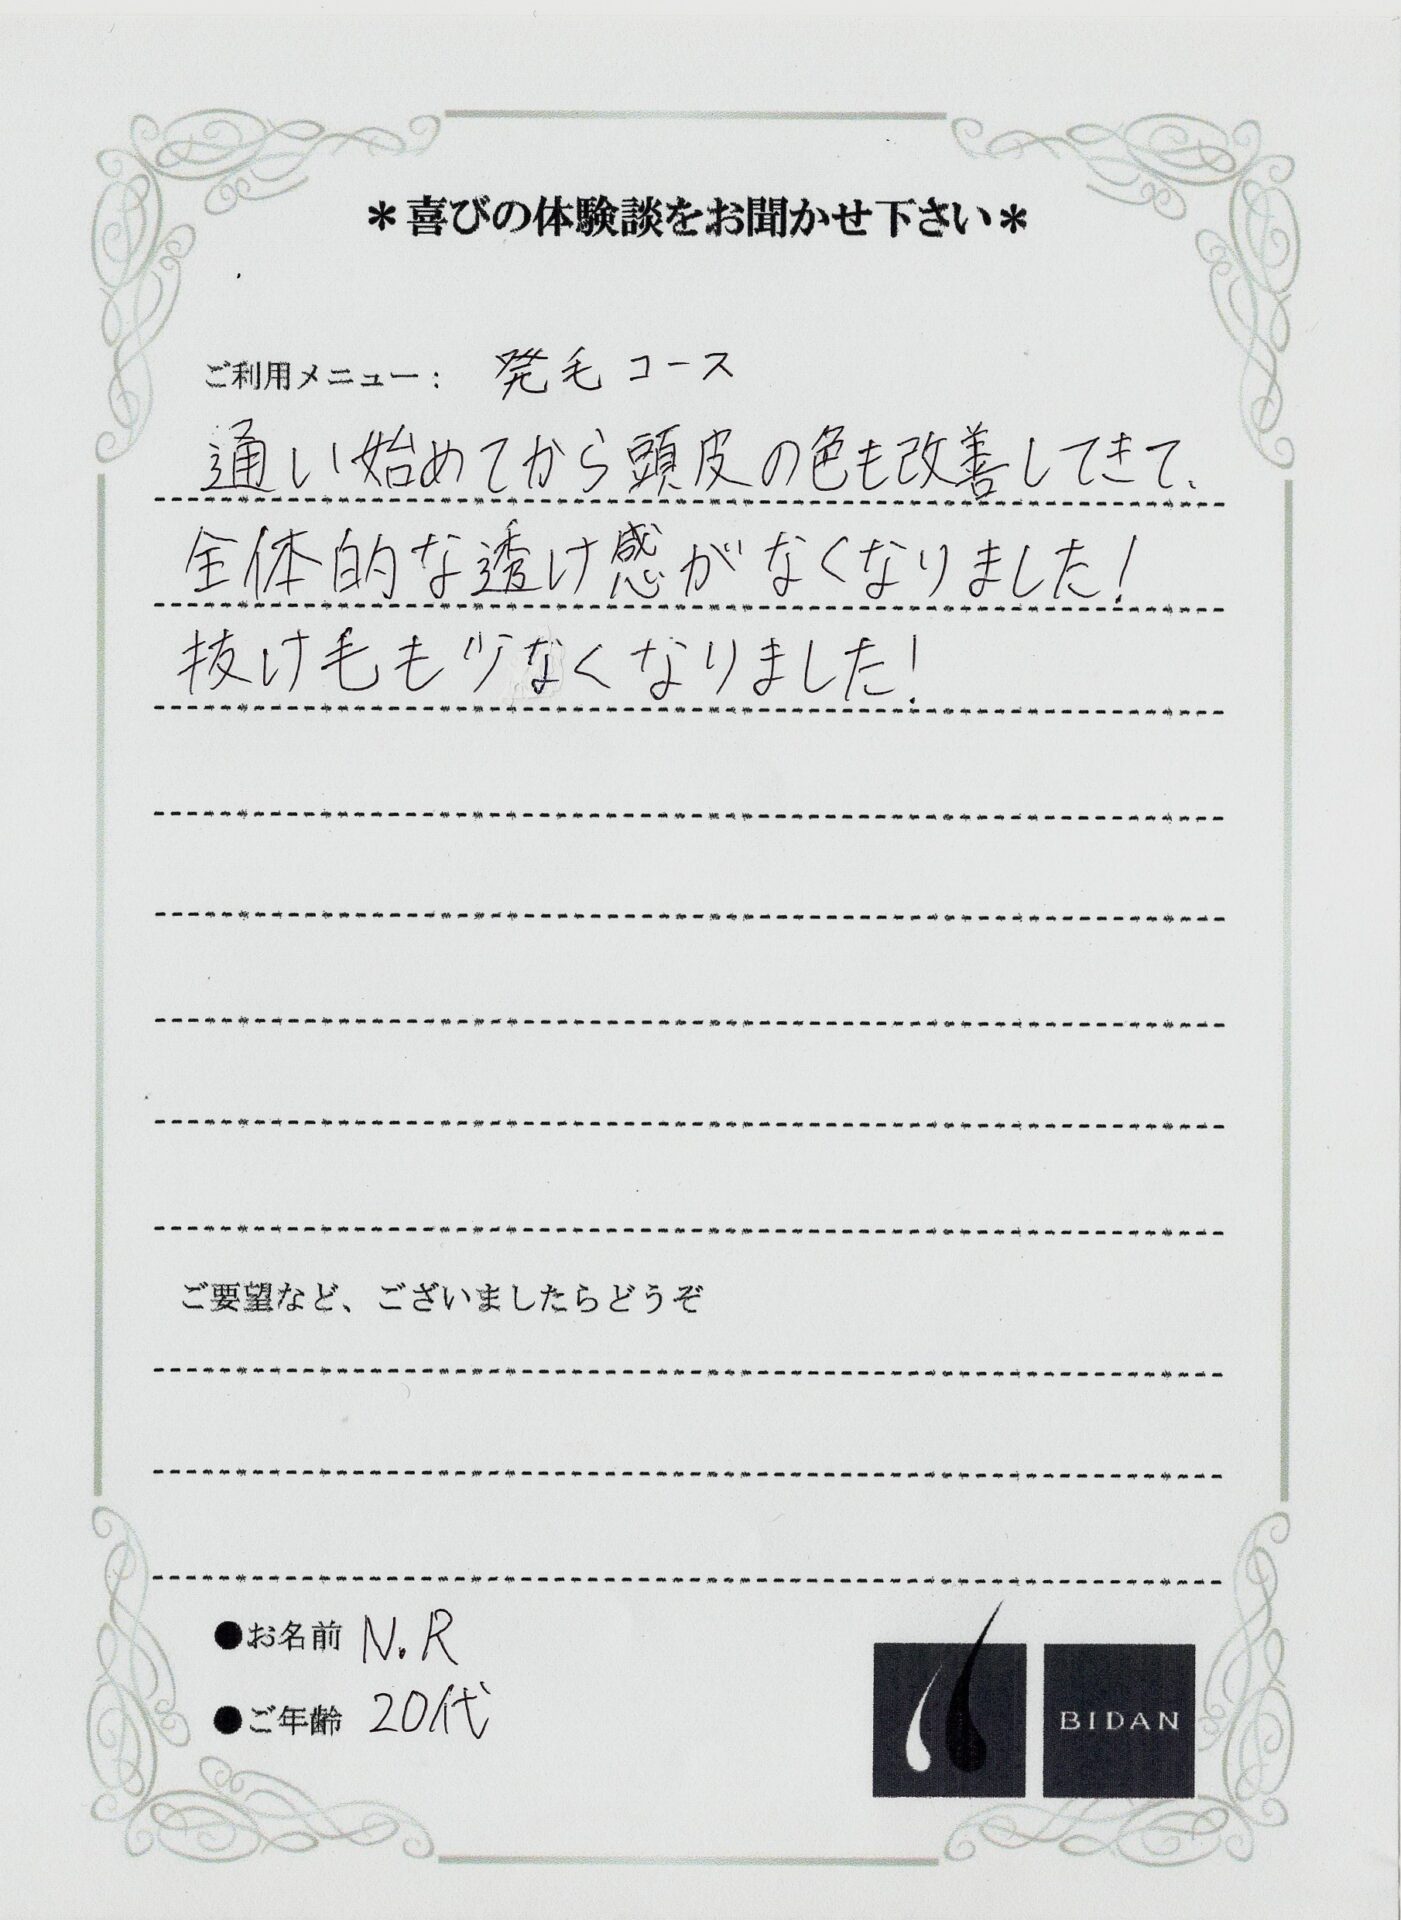 ＊喜びの体験談をお聞かせ下さい＊
ご利用メニュー： 発毛コース
通い始めてから頭皮の色も改善してきて、
全体的な透け感がなくなりました！
抜け毛も少なくなりました！
ご要望など、ございましたらどうぞ
●お名前 N.R
●ご年齢 20代
BIDAN